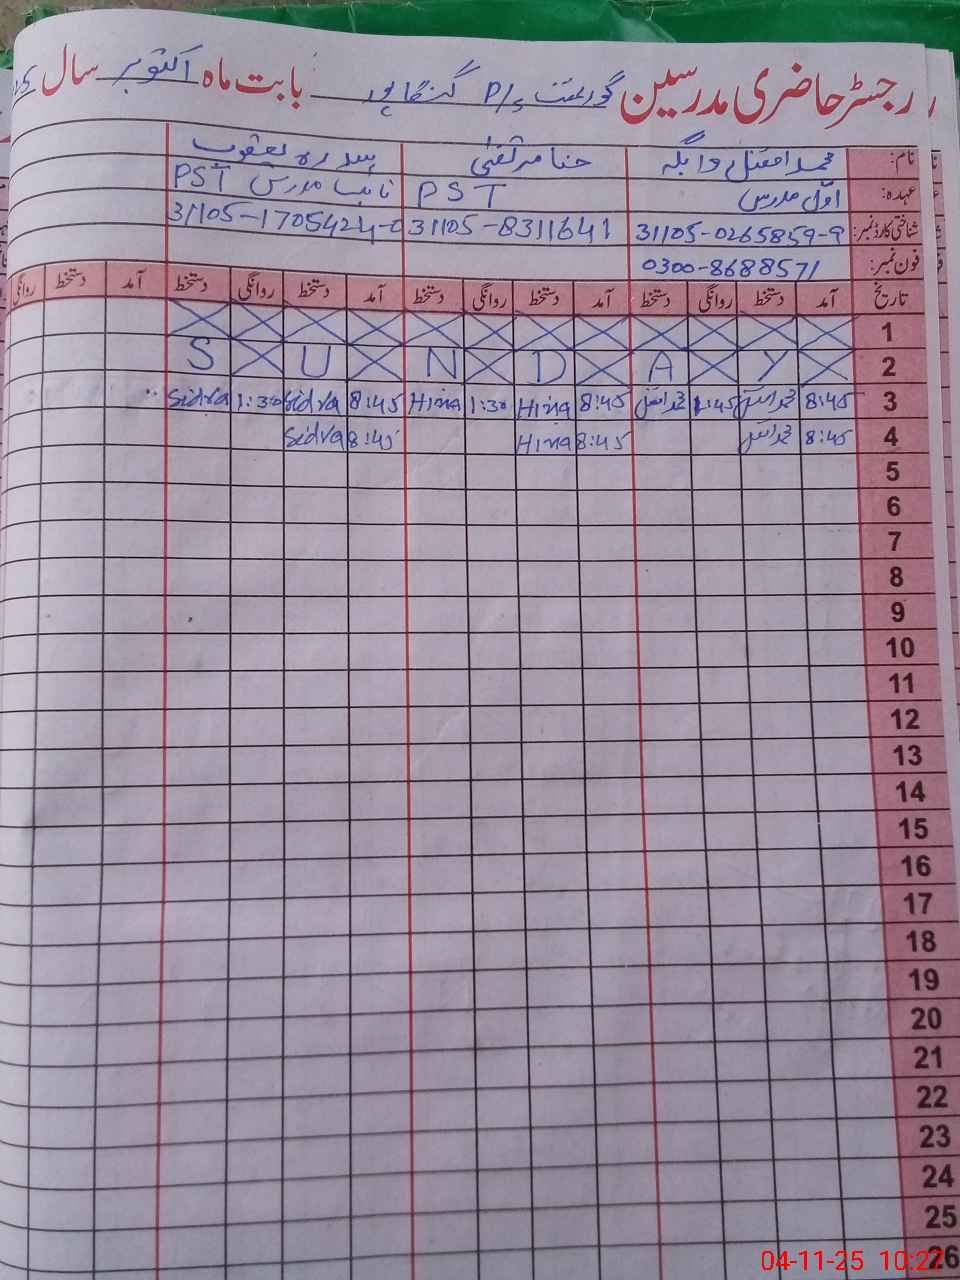 رجسٹر حاضری مدرسین گورنمنٹ P/s گنگا پور بابت ماہ اکتوبر سال
نام: محمد افضل حنا مرتضیٰ سدرہ یعقوب
عہدہ: اول مدرس PST نائب مدرس PST
شناختی کارڈ نمبر: 31105-0265859-9 31105-8311641 31105-1705424-0
فون نمبر: 0300-8688571
تاریخ آمد دستخط روانگی دستخط آمد دستخط روانگی دستخط آمد دستخط روانگی دستخط آمد دستخط روانگی
1
2 S U N D A Y
3 8:45 محمد افضل 1:45 محمد افضل 8:45 Hina 1:30 Hina 8:45 Sidra 1:30 Sidra
4 8:45 محمد افضل 8:45 Hina 8:45 Sidra
5
6
7
8
9
10
11
12
13
14
15
16
17
18
19
20
21
22
23
24
25
26
04-11-25 10:22